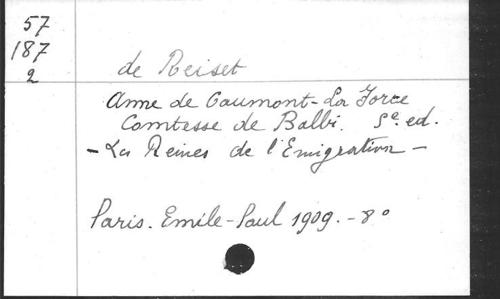 57
187
2
de Reiset
Anne de Caumont-La Force
Comtesse de Balbi. 5e. ed.
- Les Reines de l'Emigration -
Paris. Emile-Paul 1909. - 8°